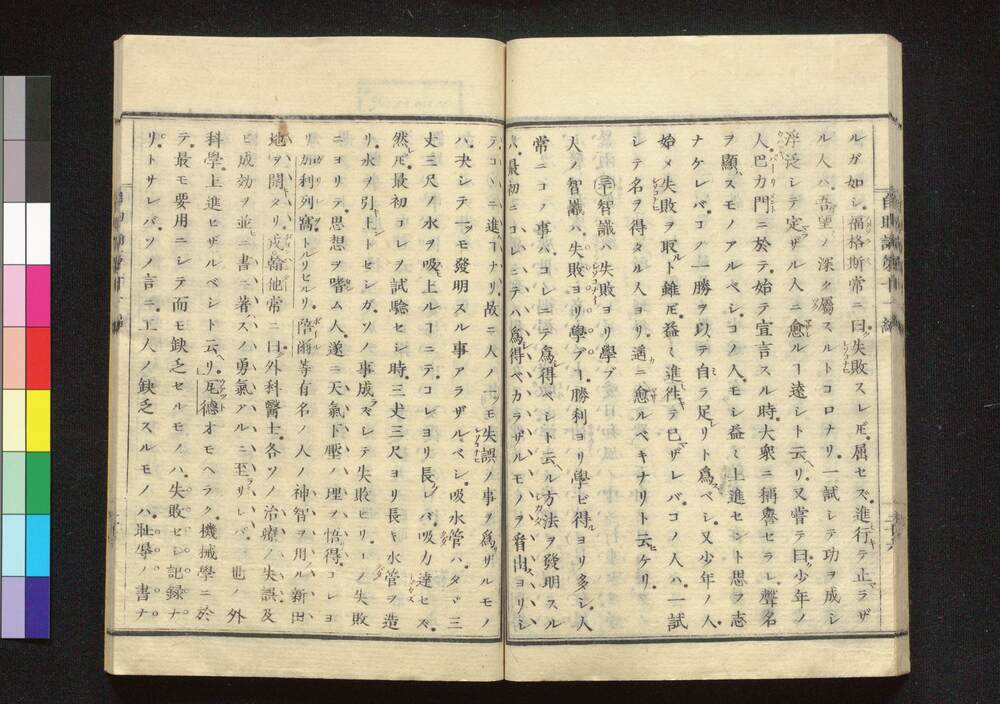 ルガ如シ。福格斯常ニ曰。失敗スレ𪜈。屈セズ。進行テ止ラザ
ル人ハ。吾望ノ深ク屬スルトコロナリ。一試シテ功ヲ成シ
浮泛シテ定ザル人ニ愈ルヿ遠シト云リ。又嘗テ曰。少年ノ
人。巴力門ニ於テ。始テ宣言スル時。大衆ニ稱譽セラレ。聲名
ヲ顯ハスモノアルベシ。コノ人。モシ益々上進セント思フ志
ナケレバ。コノ一勝ヲ以テ自ラ足リト爲ベシ。又少年ノ人。
始メ失敗ヲ取ルト雖𪜈。益々進往テ已ザレバ。コノ人ハ。一試
シテ名ヲ得タル人ヨリ。遙ニ愈ルベキナリト云ケリ。
三十 智識ハ失敗ヨリ學ブ
人ノ智識ハ。失敗ヨリ學ブヿ。勝利ヨリ學ビ得ルヨリ多シ。人
常ニコノ事ハコレニテ爲得ベシト云ル方法ヲ發明スル
ハ。最初ニコレニテハ爲得ベカラザルモノヲ看出ヨリシ
テ。コヽニ進ムヿナリ。故ニ人ノ一モ失誤ノ事ヲ爲ザルモノ
ハ。決シテ一モ發明スル事アラザルベシ。吸水管ハタヾ三
丈三尺ノ水ヲ吸上ルヿニテ。コレヨリ長レバ。吸力達セズ。
然レ𪜈。最初コレヲ試驗セシ時。三丈三尺ヨリ長キ水管ヲ造
リ。水ヲ引上ントセシガ。ソノ事成ズシテ失敗セリ。コノ失敗
ニヨリテ。思想ヲ嘗ム人。遂ニ天氣ト壓ハノ理ヲ悟得。コレヨ
リ加利列窩トルリセリ。倍爾等有名ノ人ノ神智ヲ用ル新田
地ヲ開タリ。戎翰他常ニ曰。外科醫士。各ソノ治療ノ失誤及
ビ成効ヲ並ニ書ニ著スノ勇氣アルニ至リレバ。他ノ外
科學。上進セザルベシト云リ。瓦德オモヘラク。機械學ニ於
テ。最モ要用ニシテ而モ缺乏セルモノハ。失敗セシ記録ナ
リ。トサレバ。ソノ言ニ。工人ノ缺乏スルモノハ。恥辱ノ書ナ